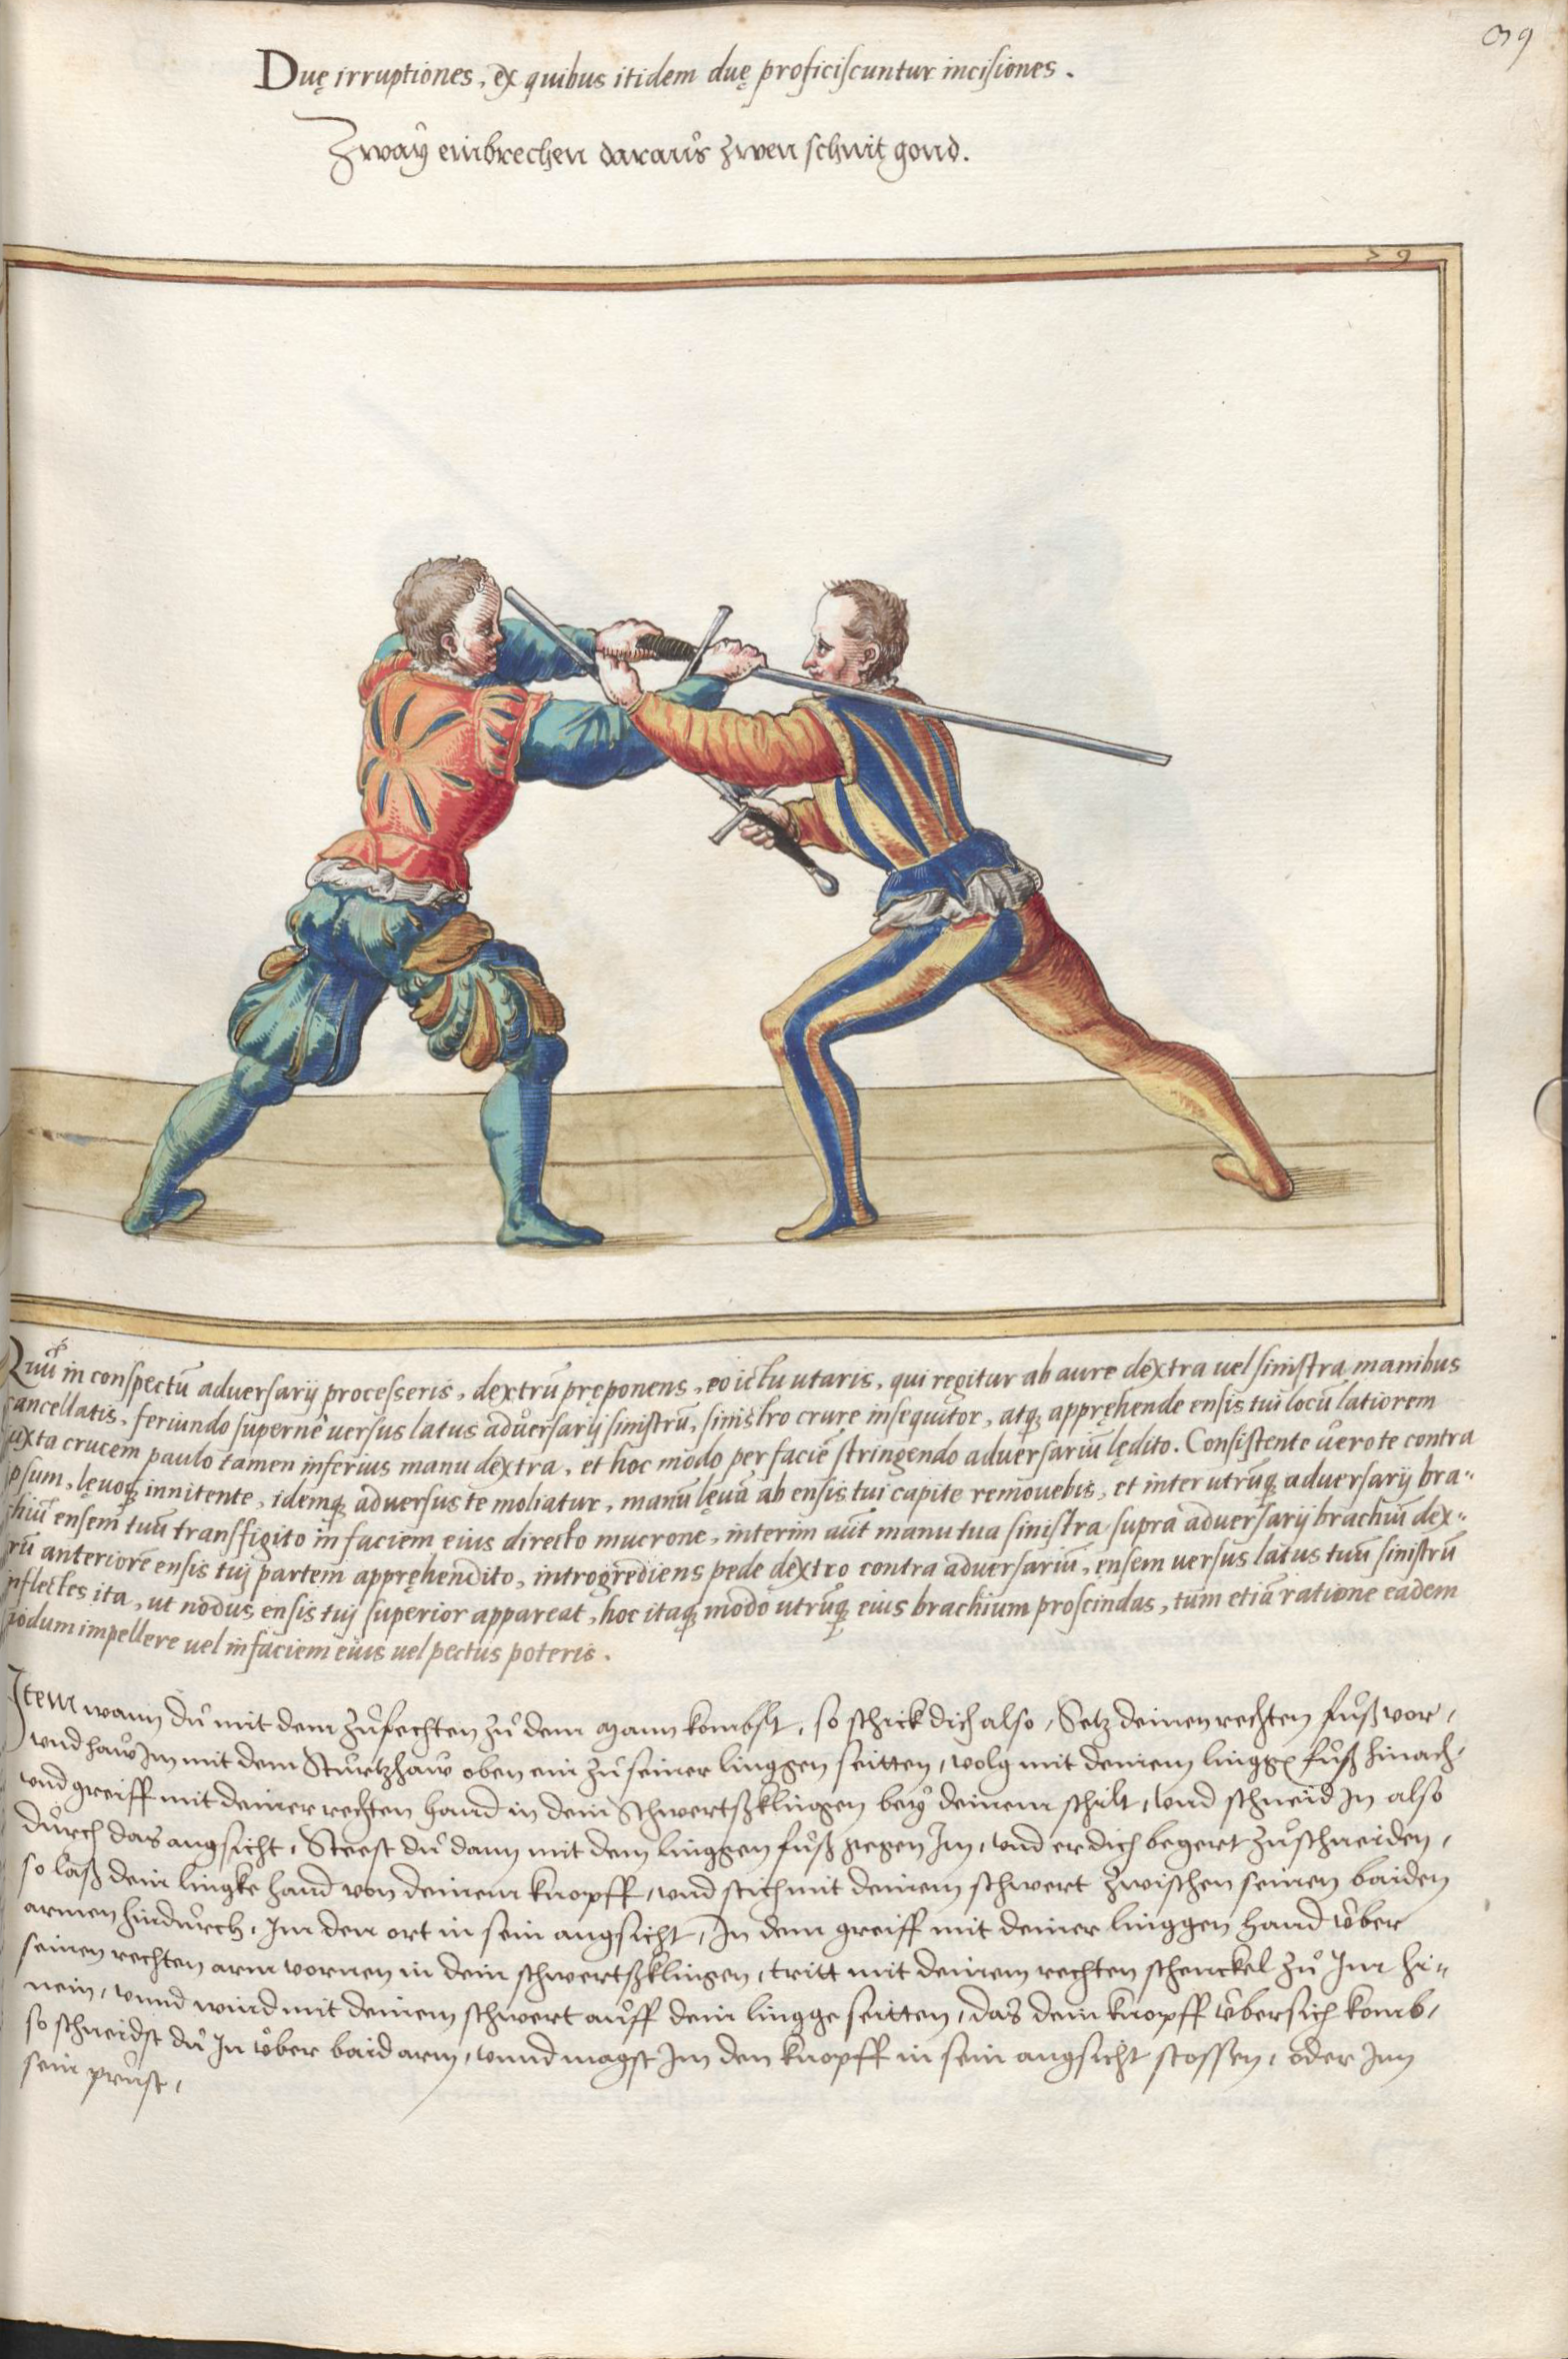 39
Duę irruptiones, ex quibus itidem duę proficiscuntur incisiones.
Zway einbrechen daraus zwen schnit gond.
39
Quū in conspectū adversarij processeris, dextrū pręponens, eo ictu utaris, qui regitur ab aure dextra vel sinistra manibus
cancellatis, feriundo supernè versus latus adversarij sinistrū, sinistro crure insequitor, atq; appręhende ensis tui locū latiorem
uxta crucem paulo tamen inferius manu dextra, et hoc modo per faciē stringendo adversariū lędito. Consistente vero te contra
psum, lęvoq; innitente, idemq; adversus te moliatur, manū lęvā ab ensis tui capite removebis, et inter utrūq; adversarij bra-
chiū ensem tuū transfigito in faciem eius directo mucrone, interim aūt manu tua sinistra supra adversarij brachiū dex-
rū anteriorē ensis tuj partem appręhendito, introgrediens pede dextro contra adversariū, ensem versus latus tuū sinistrū
nflectes ita, ut nodus ensis tuj superior appareat, hoc itaq; modo utrūq; eius brachium proscindas, tum etiā ratione eadem
nodum impellere vel in faciem eius vel pectus poteris.
Item wann du mit dem zufechten zu dem mann kombst, so schick dich also, Setz deinen rechten fuß vor,
vnd haw Im mit dem Sturtzhaw oben ein zu seiner linggen seitten, volg mit deinem lingge fuß hinach,
vnd greiff mit deiner rechten hand in dein Schwertßklingen bey deinem schilt, vnd schneid In also
durch das angsicht, Steest du dann mit dem linggen fuß gegen Im, vnd er dich begert zuschneiden,
so laß dein lingke hand von deinem knopff, vnd stich mit deinem schwert zwischen seinen baiden
armen hindurch, Im den ort in sein angsicht, In dem greiff mit deiner linggen hand über
seinen rechten arm vornen in dein schwertßklingen, tritt mit deinem rechten schenckel zu Im hi-
nein, vnnd wind mit deinem schwert auff dein lingge seitten, das dein knopff übersich komb,
so schneidst du In über baid arm, vnnd magst Im den knopff in sein angsicht stossen, oder Inn
sein prust,